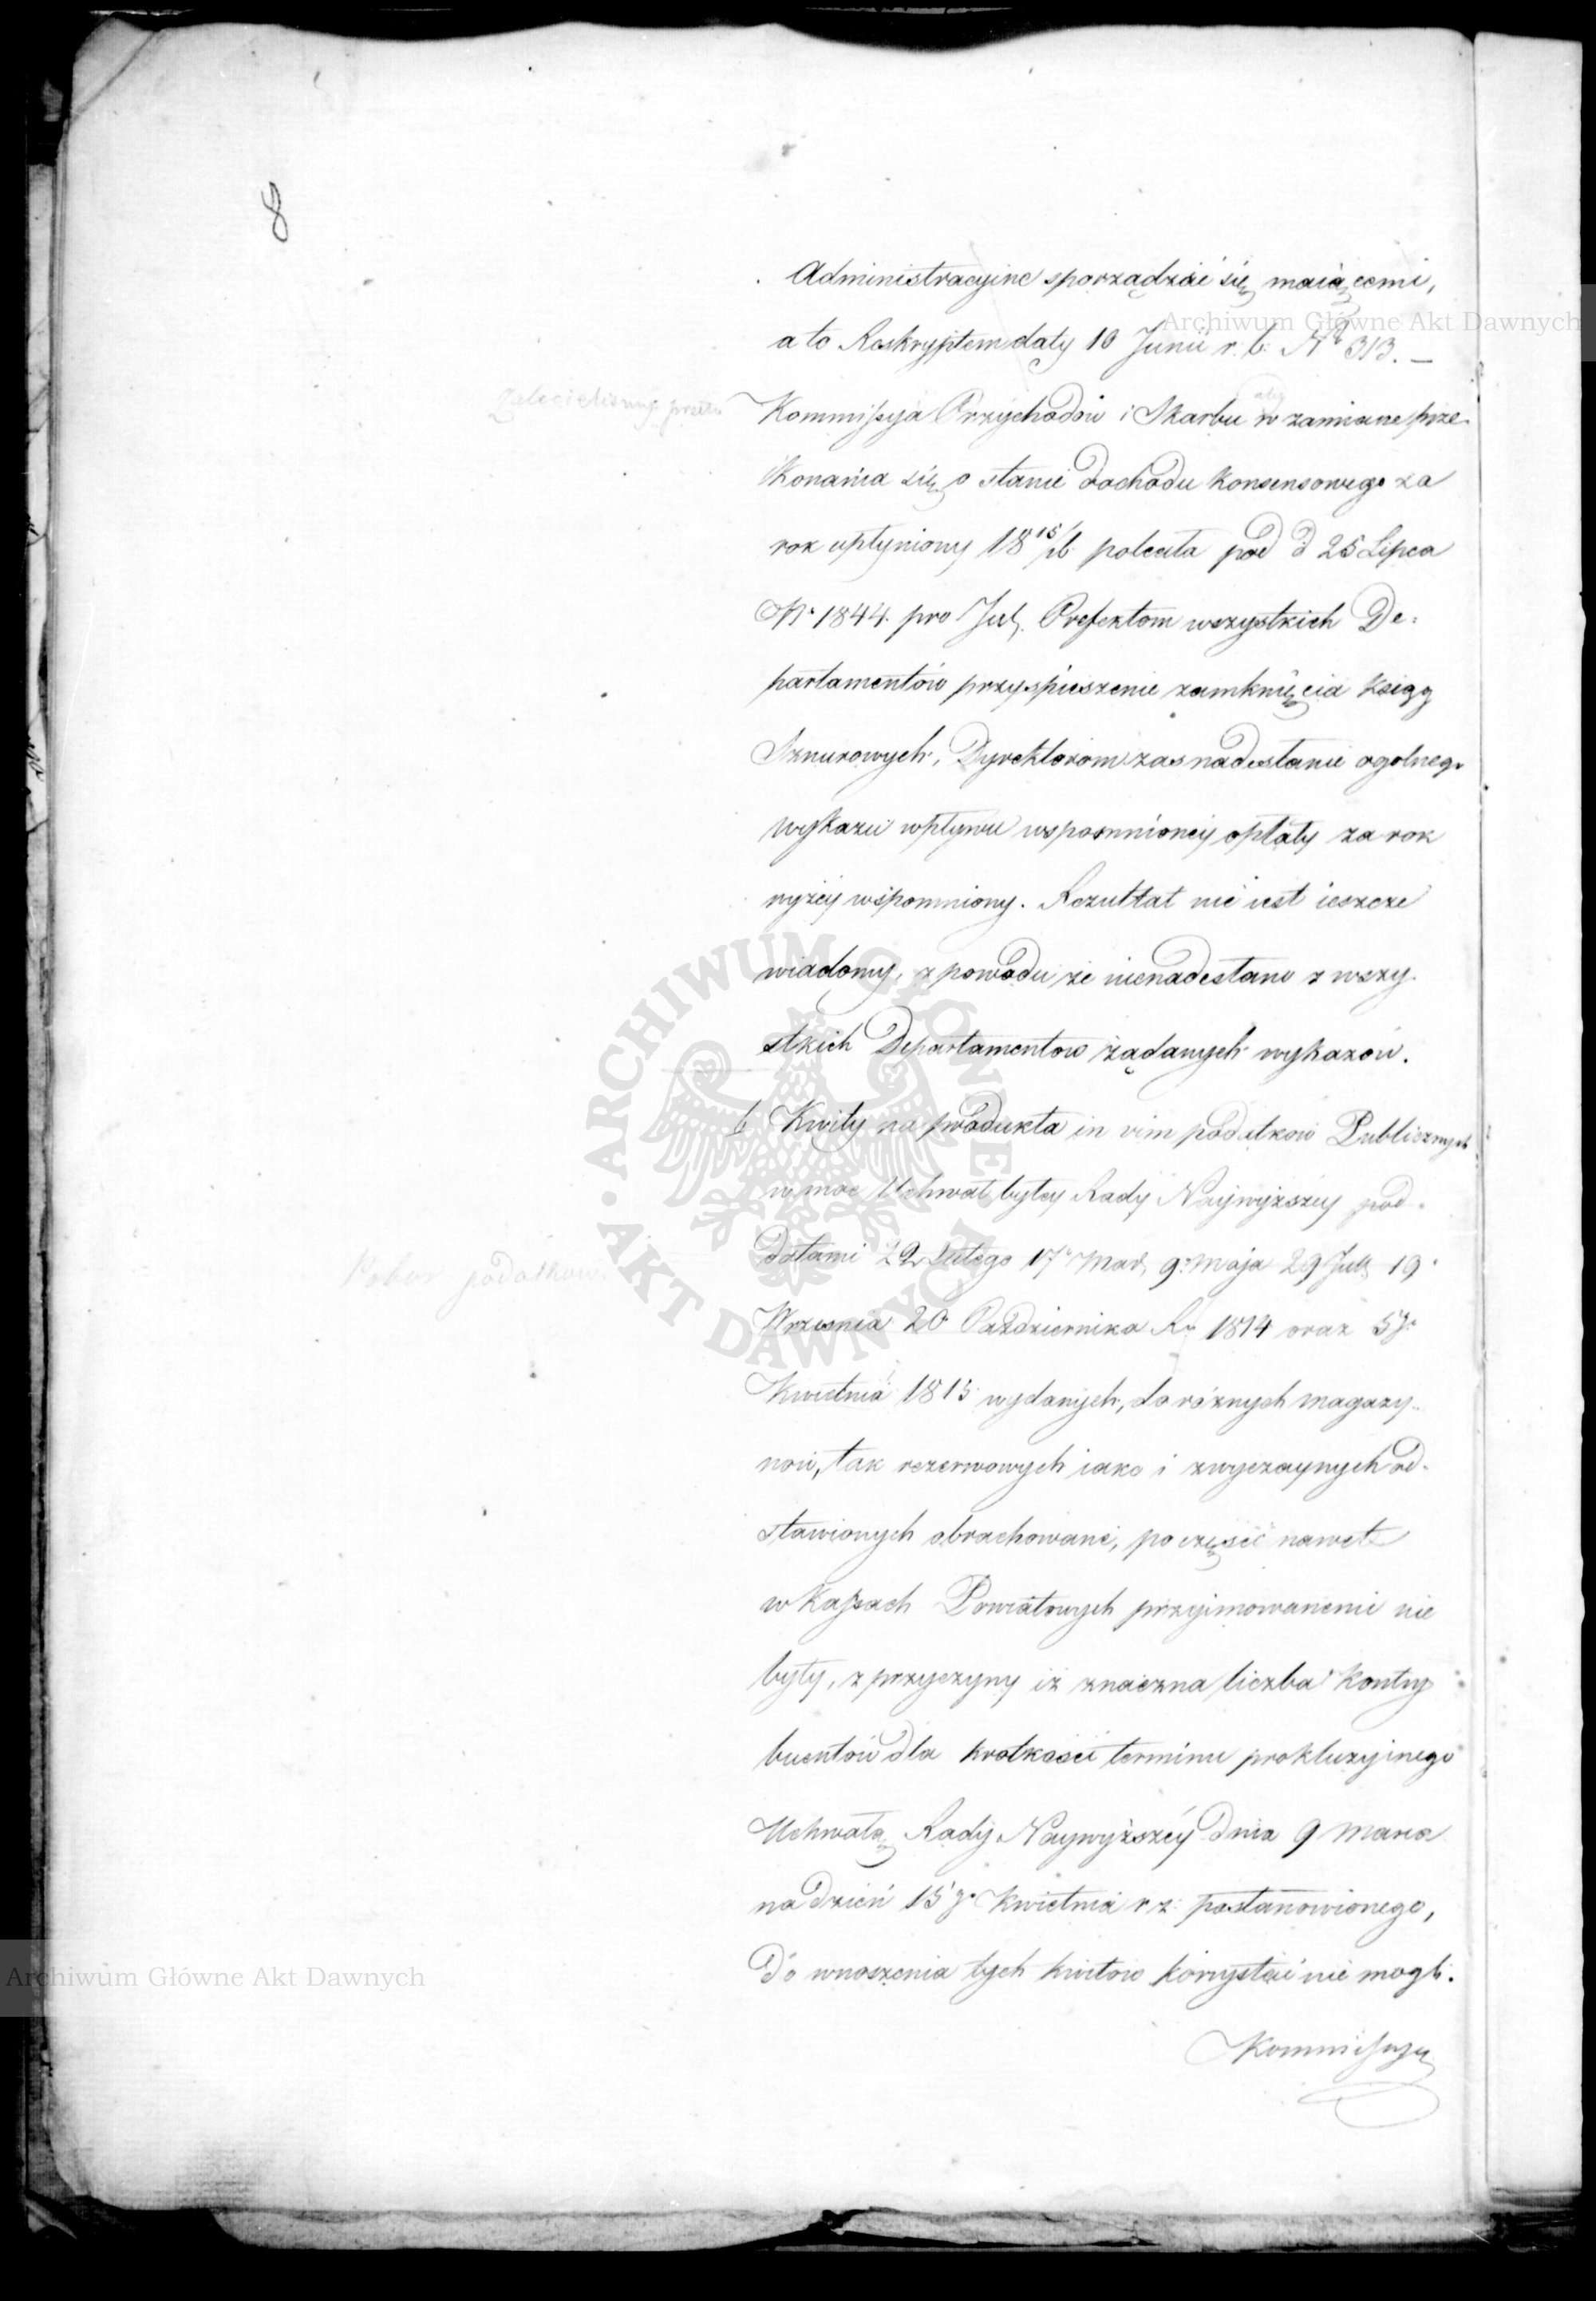 8
Administracyine sporządzić się maiącemi,
a to Reskryptem daty 10 Junii r. b. N 313. —
Kommissya Przychodów i Skarbu w zamiane prze
konania się o stanie dochodu konsensowego za
rok upłyniony 18 15/16 poleciła pod d 25 Lipca
N 1844 pro Jul. Prefektom wszystkich De:
partamentów przyspieszenie zamknięcia ksiąg
Sznurowych, Dyrektorom zas nadesłanie ogolnego
wykazu wpływu wspomnioney opłaty za rok
wyżey wspomniony. Rezultat nie iest ieszcze
wiadomy, z powodu że nienadesłano z wszy
stkich Departamentow żądanych wykazów.
Kwity na produkta in vim podatkow Publicznych
w moc Uchwał byłey Rady Naywyższey pod
datami 22 Lutego 17 Mar, 9 Maja 29 Jul, 19
Września 20 Października R 1814 oraz 5go
Kwietnia 1815 wydanych, do róznych magazy
now, tak rezerwowych iako i zwyczaynych od
stawionych obrachowane, po częsci nawet
w Kassach Powiatowych przyimowanemi nie
były, z przyczyny iż znaczna liczba Kontry
buentów dla krotkości terminu prekluzyinego
Uchwałą Rady Naywyższéy dnia 9 Marca
na dzień 15go Kwietnia r z. postanowionego,
do wnoszenia tych kwitow korzystać nie mogli.
Kommissya
Pobor podatkow.
Archiwum Główne Akt Dawnych
ARCHIWUM GŁÓWNE AKT DAWNYCH
Archiwum Główne Akt Dawnych